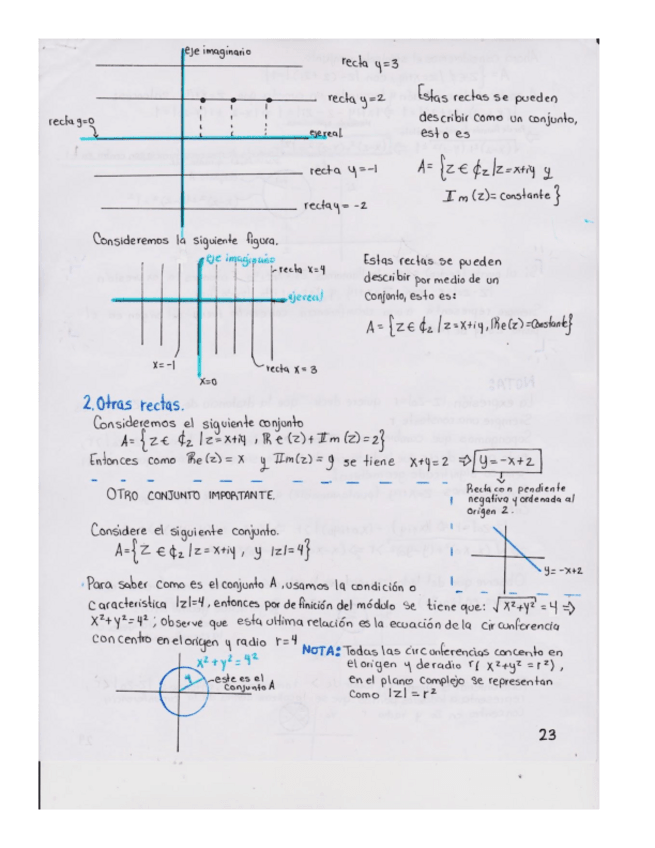 eje imaginario
recta y=3
recta y=2
recta y=0
eje real
recta y=-1
recta y=-2
Estas rectas se pueden
describir como un conjunto,
esto es
A= {z ∈ ₵z / z=x+iy y
Im(z)= constante}
Consideremos la siguiente figura.
eje imaginario
recta x=4
eje real
x=-1
recta x=3
x=0
Estas rectas se pueden
describir por medio de un
Conjonto, esto es:
A= {z ∈ ₵z / z=x+iy, Re(z)=Constante}
2. Otras rectas.
Consideremos el siguiente conjunto
A= {z ∈ ₵z / z=x+iy, Re(z)+Im(z)=2}
Entonces como Re(z)=x y Im(z)=y se tiene x+y=2 ⇒ y=-x+2
Recta con pendiente
negativa y ordenada al
origen 2.
y=-x+2
OTRO CONJUNTO IMPORTANTE.
Considere el siguiente conjunto.
A={z ∈ ₵z / z=x+iy, y |z|=4}
Para saber como es el conjunto A, usamos la condición o
característica |z|=4, entonces por definición del módulo se tiene que: √x²+y² = 4 ⇒
x²+y²=4²; Observe que esta ultima relación es la ecuación de la circunferencia
con centro en el origen y radio r=4
x²+y²=4²
4
este es el
conjunto A
NOTA: Todas las circunferencias con centro en
el origen y de radio r( x²+y²=r²),
en el plano complejo se representan
como |z|=r²
23